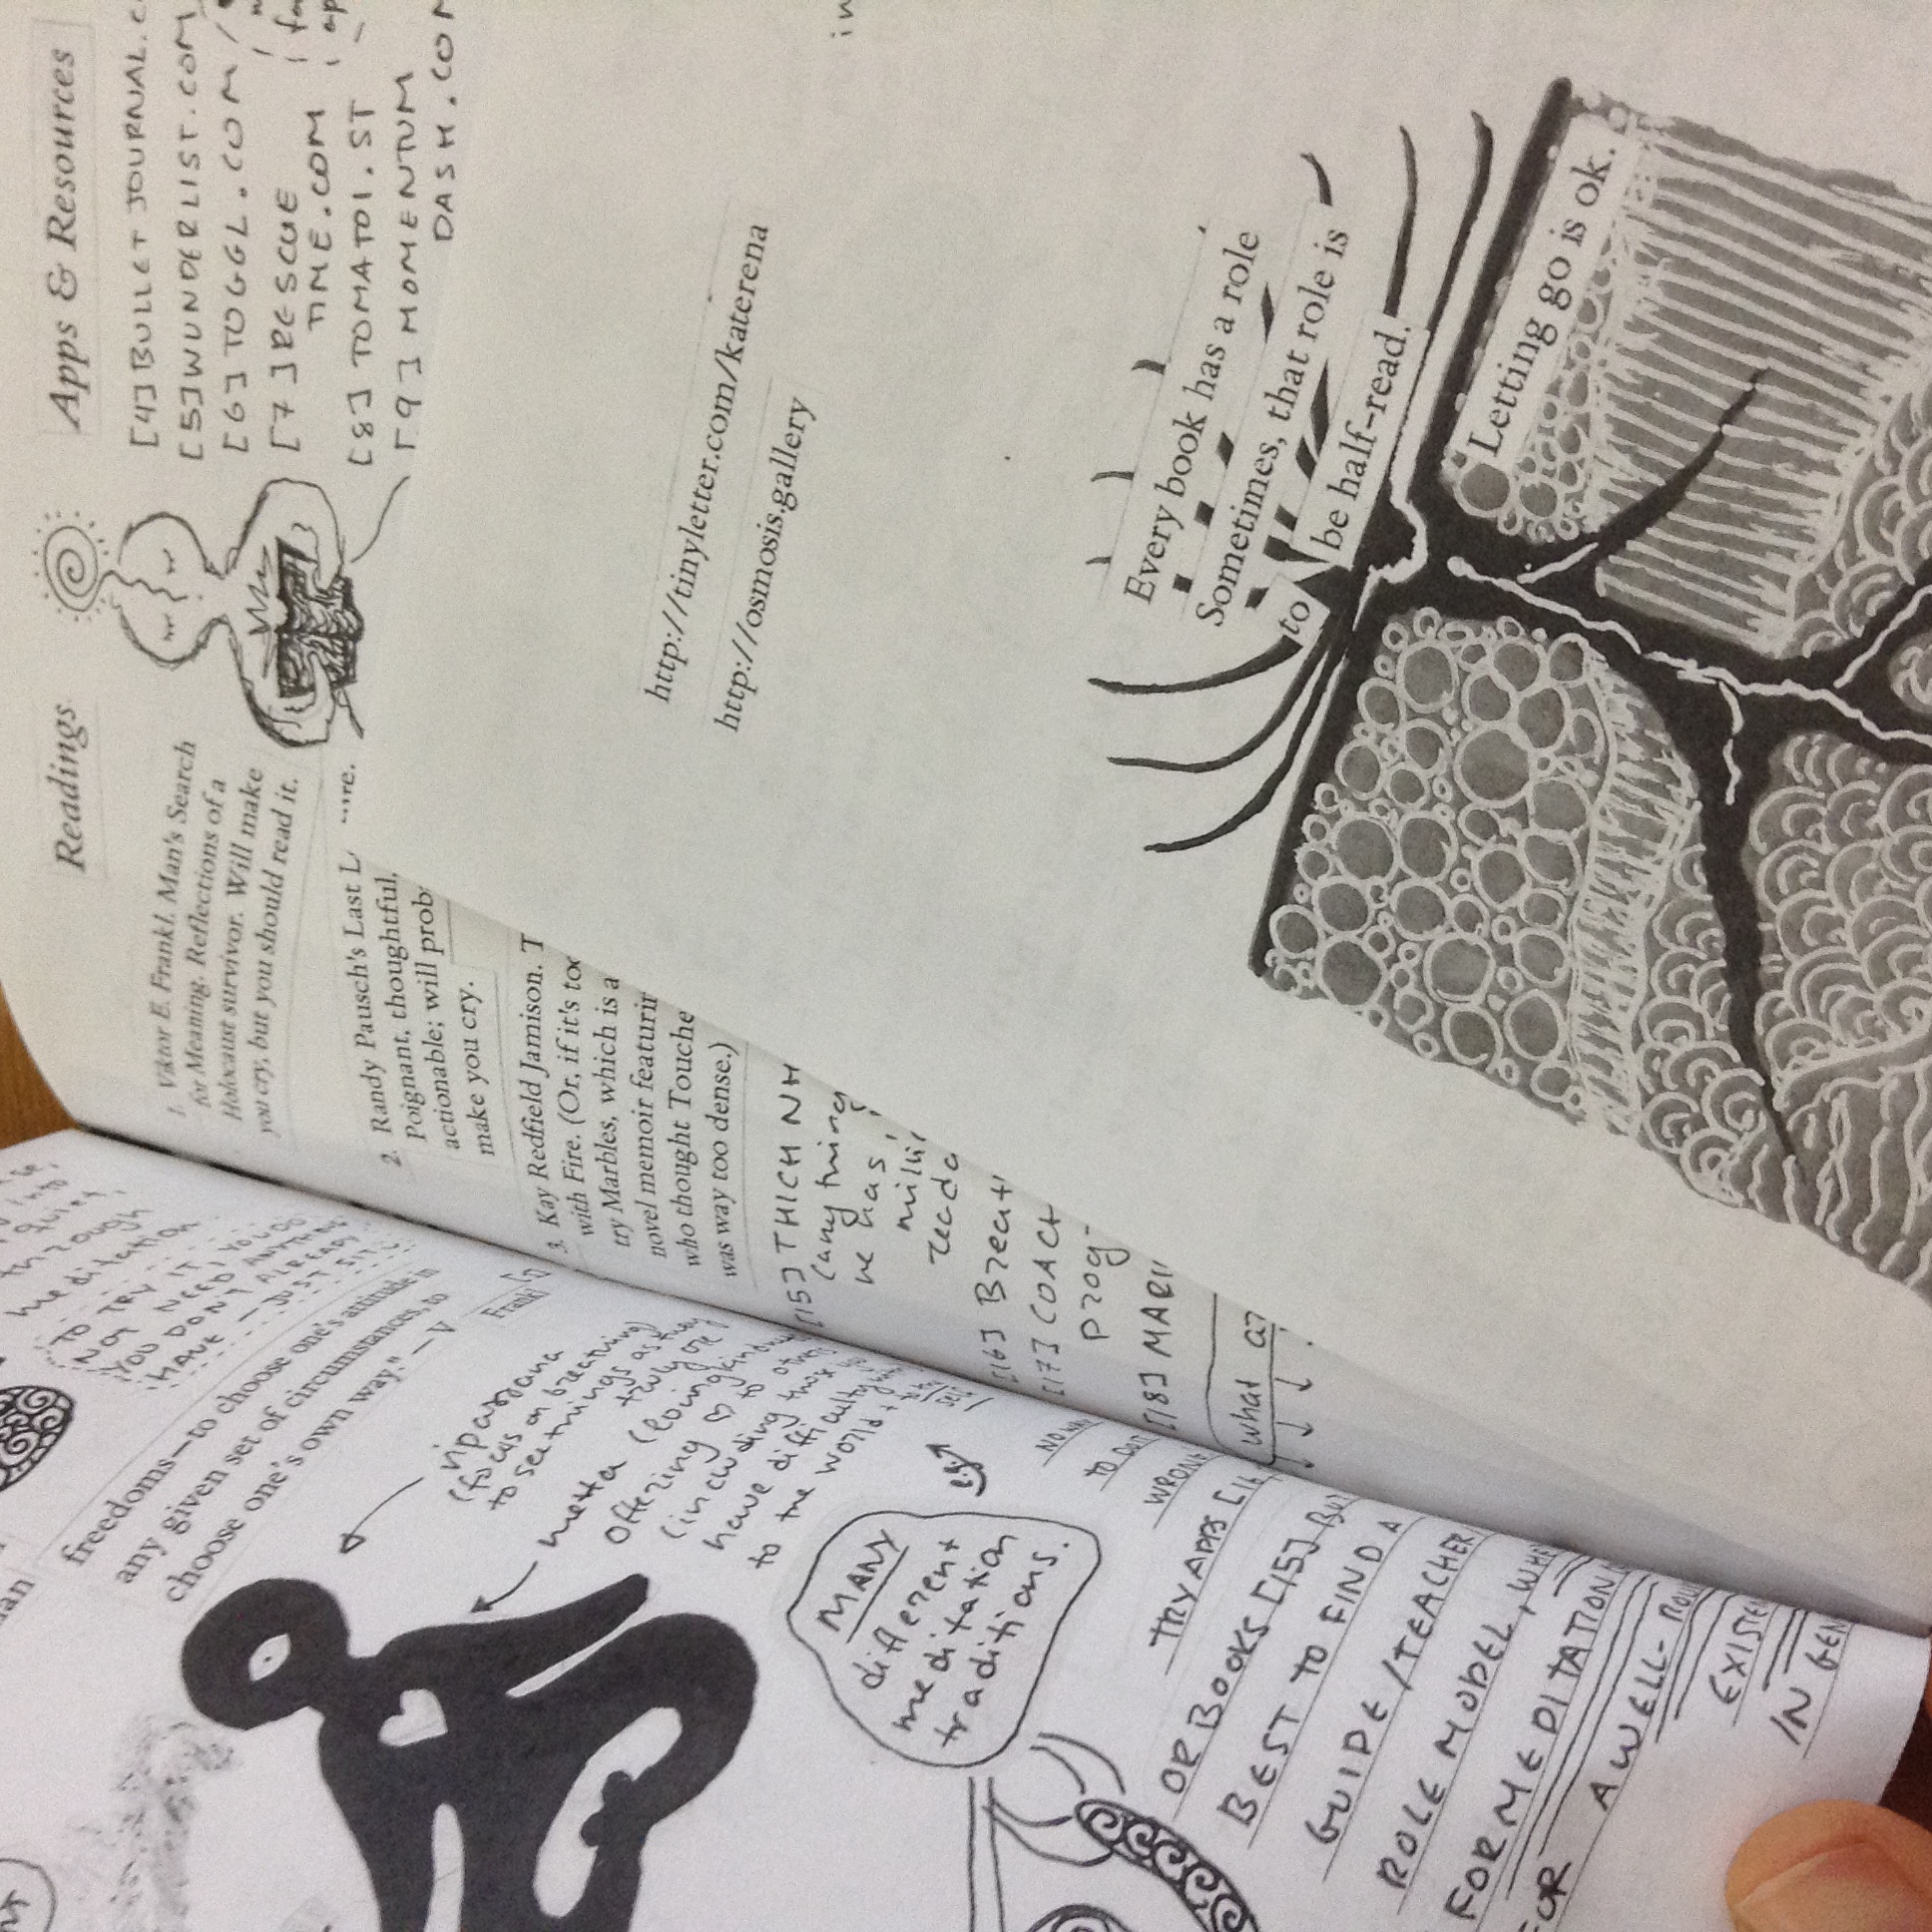 freedoms—to choose one's attitude in
any given set of circumstances, to
choose one's own way." — V
Frankl
meditation
TO TRY IT, YOU DO
NOT NEED ANYTHING
YOU DON'T ALREADY
HAVE — JUST SIT
vipassana
(focus on breathing)
to see things as they
truly are
metta (loving kindness
offering ♡ to others
(including those you
have difficulty
to the world +
MANY
different
meditation
traditions.
e.g.
NO WAY
TO DO IT
WRONG
TRY APPS [16,
OR BOOKS [15] BUT
BEST TO FIND A
GUIDE/TEACHER
ROLE MODEL,
FOR MEDITATION
FOR A WELL-
IN GEN
Readings
1. Viktor E. Frankl. Man's Search
for Meaning. Reflections of a
Holocaust survivor. Will make
you cry, but you should read it.
2. Randy Pausch's Last L
Poignant, thoughtful,
actionable; will prob
make you cry.
3. Kay Redfield Jamison. T
with Fire. (Or, if it's too
try Marbles, which is a
novel memoir featurin
who thought Touche
was way too dense.)
[15] THICH NH
(anything
he has,
milli
reada
[16] Breat
[17] COACH
prog
[18] MARI
what ar
Apps & Resources
[4] BULLET JOURNAL.C
[5] WUNDERLIST.COM
[6] TOGGL.COM
[7] RESCUE
TIME.COM
[8] TOMATOI.ST
[9] MOMENTUM
DASH.COM
http://tinyletter.com/katerena
http://osmosis.gallery
Every book has a role
Sometimes, that role is
to be half-read.
Letting go is ok.